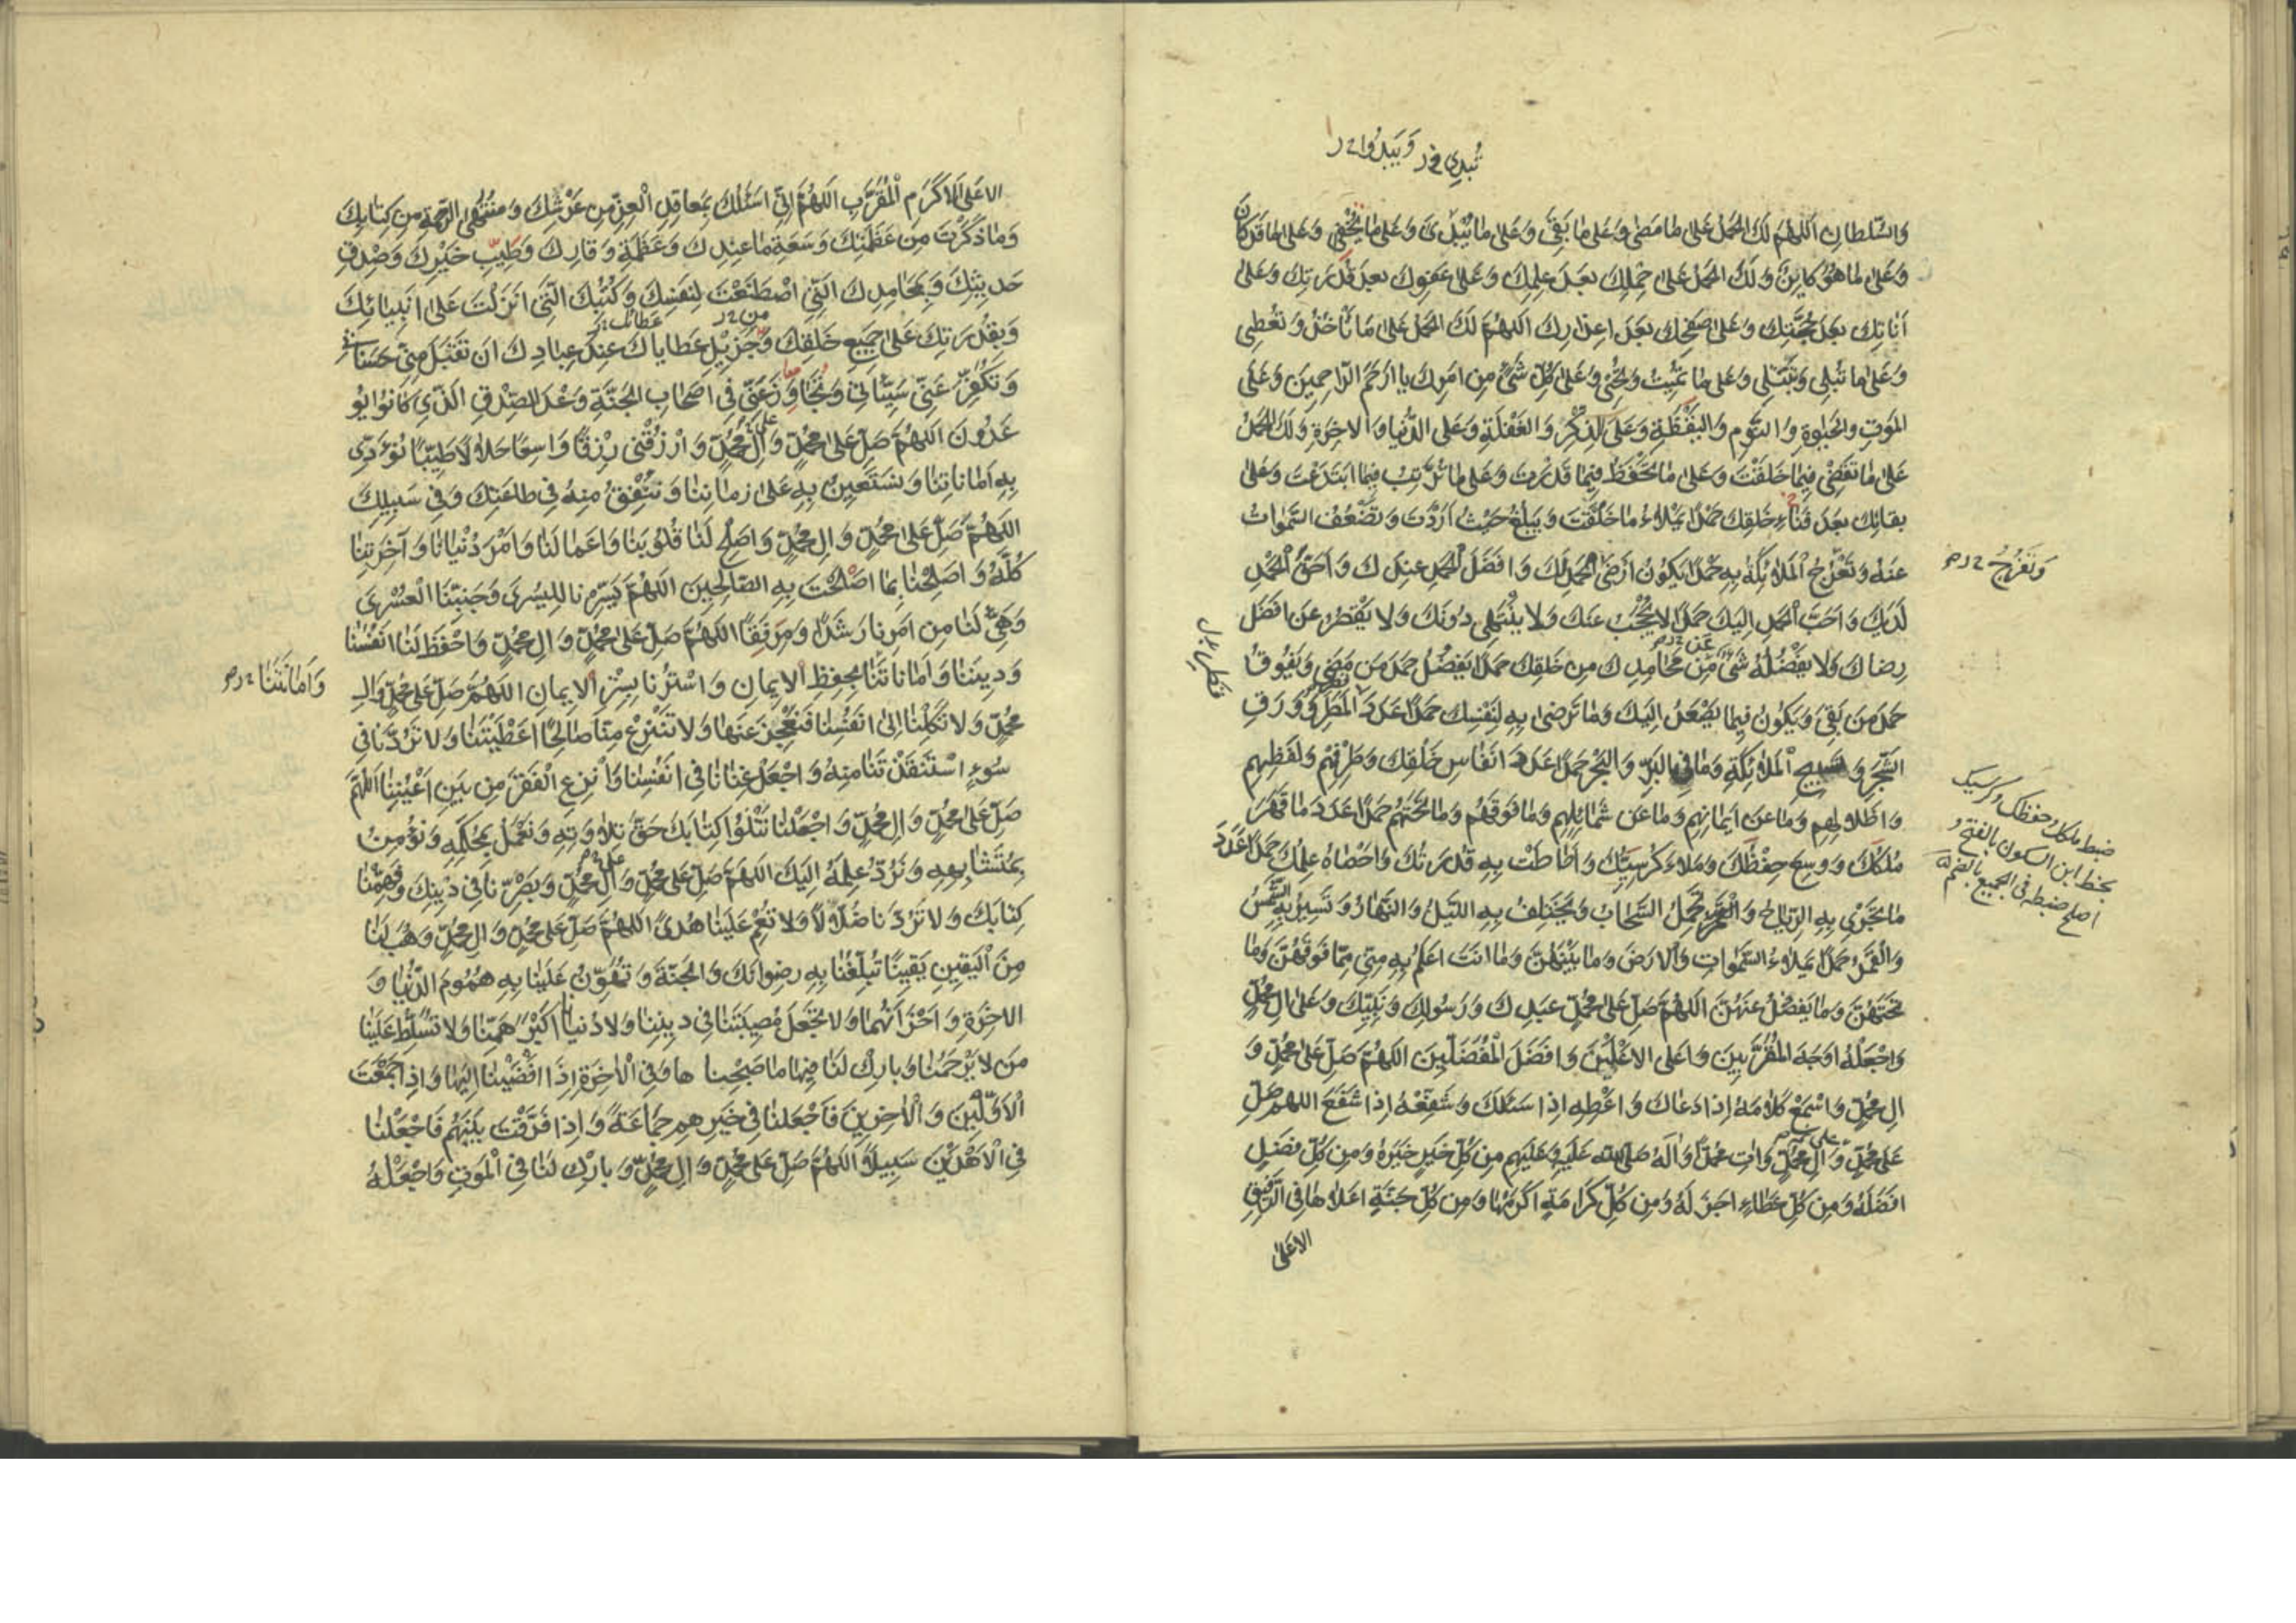 تُبدِي خ ر وَ يَبدُوا خ ر
وَالسُّلطانِ اَللّهُمَّ لَكَ الحَمدُ عَلىٰ ما مَضىٰ وَعَلىٰ ما بَقِيَ وَعَلىٰ ما تُبْدِئُ وَعَلىٰ ما يُخْفىٰ وَعَلىٰ ما قَد كانَ
وَعَلىٰ ما هُوَ كايِنٌ وَلَكَ الحَمدُ عَلىٰ حِلمِكَ بَعدَ عِلمِكَ وَعَلىٰ عَفوِكَ بَعدَ قُدرَتِكَ وَعَلىٰ
اَناتِكَ بَعدَ حُجَّتِكَ وَعَلىٰ صَفحِكَ بَعدَ اِعذارِكَ اَللّهُمَّ لَكَ الحَمدُ عَلىٰ ما تَأخُذُ وَتُعْطِي
وَعَلىٰ ما تُبلِي وَتَبتَلِي وَعَلىٰ ما تُمِيتُ وَتُحْيِي وَعَلىٰ كُلِّ شَيْءٍ مِن اَمرِكَ يا اَرحَمَ الرّاحِمِينَ وَعَلَى
المَوتِ وَالحَيٰوةِ وَالنَّومِ وَاليَقْظَةِ وَعَلَى الذِّكْرِ وَالغَفْلَةِ وَعَلَى الدُّنيا وَالاخِرَةِ وَلَكَ الحَمدُ
عَلىٰ ما تَقضِي فِيما خَلَقْتَ وَعَلىٰ ما تَحْفَظُ فِيما قَدَّرتَ وَعَلىٰ ما تُرَتِّبُ فِيما ابتَدَعْتَ وَعَلىٰ
بَقائِكَ بَعدَ فَناءِ خَلقِكَ حَمْدًا يَمْلَاءُ ما خَلَقْتَ وَيَبلُغُ حَيْثُ اَرَدْتَ وَتَضْعُفُ السَّمٰواتُ
عَنْهُ وَتَعْرُجُ الْمَلائِكَةُ بِهِ حَمْدًا يَكُونُ اَرْضَى الحَمدِ لَكَ وَاَفضَلَ الْحَمدِ عِندَكَ وَاَحَقَّ الْحَمْدِ
وَتَعْرُجُ خ ر ص
لَدَيكَ وَاَحَبَّ الْحَمدِ اِلَيكَ حَمْدًا لا يُحْجَبُ عَنكَ وَلا يَنْتَهِي دُونَكَ وَلا يَقْصُرُ عَن اَفضَلِ
رِضاكَ وَلا يَفْضُلُهُ شَيْءٌ مِن مَحامِدِكَ مِن خَلقِكَ حَمدًا يَفضُلُ حَمدَ مَن مَضىٰ وَيَفُوقُ
حَمدَ مَن بَقِيَ وَيَكُونُ فِيما يَصْعَدُ اِلَيكَ وَما تَرضىٰ بِهِ لِنَفْسِكَ حَمدًا عَدَدَ الْمَطَرِ وَوَرَقِ
الشَّجَرِ وَتَسبِيحِ الْمَلائِكَةِ وَما فِي البَرِّ وَالبَحْرِ حَمدًا عَدَدَ اَنفاسِ خَلْقِكَ وَطَرْفِهِمْ وَلَفظِهِم
وَاَظْلالِهِم وَما عَن اَيمانِهِم وَما عَن شَمائِلِهِم وَما فَوقَهُم وَما تَحْتَهُم حَمدًا عَدَدَ ما قَهَرَ
مُلكُكَ وَوَسِعَ حِفْظُكَ وَمَلَاءَ كُرسِيُّكَ وَاَحاطَتْ بِهِ قُدرَتُكَ وَاَحصاهُ عِلمُكَ حَمدًا عَدَدَ
ضبط ملكك وحفظك وكرسيك
بخط ابن السكون بالفتح و
اصلح ضبطه في الجميع بالضم
ما تَجْرِي بِهِ الرِّياحُ وَتَحْمِلُ السَّحابُ وَيَختَلِفُ بِهِ اللَّيلُ وَالنَّهارُ وَتَسِيرُ بِهِ الشَّمسُ
وَالْقَمَرُ حَمدًا يَملَاءُ السَّمٰواتِ وَالاَرضَ وَما بَيْنَهُنَّ وَما اَنتَ اَعلَمُ بِهِ مِنِّي مِمّا فَوقَهُنَّ وَما
تَحتَهُنَّ وَما يَفضُلُ عَنهُنَّ اَللّهُمَّ صَلِّ عَلىٰ مُحَمَّدٍ عَبدِكَ وَرَسُولِكَ وَنَبِيِّكَ وَعَلىٰ الِ مُحَمَّدٍ
وَاجْعَلْهُ اَوجَهَ المُقَرَّبِينَ وَاَعلَى الاَعْلَيْنَ وَاَفضَلَ الْمُفَضَّلِينَ اَللّهُمَّ صَلِّ عَلىٰ مُحَمَّدٍ وَ
الِ مُحَمَّدٍ وَاسْمَعْ كَلامَهُ اِذا دَعاكَ وَاَعْطِهِ اِذا سَئَلَكَ وَشَفِّعْهُ اِذا شَفَعَ اللهم صَلِّ
عَلىٰ مُحَمَّدٍ وَالِ مُحَمَّدٍ وَاتِ مُحَمَّدًا وَآلَهُ صَلَّى اللّه عَلَيهِ وَعَلَيهِم مِن كُلِّ خَيرٍ خَيرَهُ وَمِن كُلِّ فَضلٍ
اَفضَلَهُ وَمِن كُلِّ عَطاءٍ اَجزَلَهُ وَمِن كُلِّ كَرامَةٍ اَكرَمَها وَمِن كُلِّ جَنَّةٍ اَعلاها فِي الرَّفِيقِ
الاَعلىٰ
الاَعلَى الاَكرَمِ الْمُقَرَّبِ اَللّهُمَّ اِنِّي اَسئَلُكَ بِمَعاقِدِ الْعِزِّ مِن عَرْشِكَ وَمُنْتَهَى الرَّحمَةِ مِن كِتابِكَ
وَما ذَكَرْتَ مِن عَظَمَتِكَ وَسَعَةِ ما عِندَكَ وَعَظَمَةِ وَقارِكَ وَطَيِّبِ خَيْرِكَ وَصِدقِ
حَدِيثِكَ وَبِمَحامِدِكَ الَّتِي اصْطَنَعْتَ لِنَفسِكَ وَكُتُبِكَ الَّتِي اَنزَلْتَ عَلىٰ اَنبِيائِكَ
وَبِقُدرَتِكَ عَلىٰ جَمِيعِ خَلقِكَ وَجَزِيلِ عَطاياكَ عِندَ عِبادِكَ اَن تَقَبَّلَ مِنِّي حَسَناتِي
وَتُكَفِّرَ عَنِّي سَيِّئاتِي وَتَجاوَزَ عَنِّي فِي اَصحابِ الجَنَّةِ وَعْدَ الصِّدقِ الَّذِي كانُوا يُو
عَدُونَ اَللّهُمَّ صَلِّ عَلىٰ مُحَمَّدٍ وَالِ مُحَمَّدٍ وَارْزُقْنِي رِزْقًا واسِعًا حَلالًا طَيِّبًا نُؤَدِّي
بِهِ اَماناتِنا وَنَستَعِينُ بِهِ عَلىٰ زَمانِنا وَنُنْفِقُ مِنهُ فِي طاعَتِكَ وَفِي سَبِيلِكَ
اَللّهُمَّ صَلِّ عَلىٰ مُحَمَّدٍ وَالِ مُحَمَّدٍ وَاَصلِحْ لَنا قُلُوبَنا وَاَعمالَنا وَاَمْرَ دُنْيانا وَآخِرَتِنا
كُلَّهُ وَاَصلِحْنا بِما اَصْلَحْتَ بِهِ الصّالِحِينَ اَللّهُمَّ يَسِّرْنا لِليُسْرىٰ وَجَنِّبْنَا الْعُسْرىٰ
وَهَيِّئْ لَنا مِن اَمرِنا رَشَدًا وَمِرفَقًا اَللّهُمَّ صَلِّ عَلىٰ مُحَمَّدٍ وَالِ مُحَمَّدٍ وَاحْفَظْ لَنا اَنفُسَنا
وَدِينَنا وَاَماناتَنا بِحِفظِ الاِيمانِ وَاسْتُرْنا بِسِتْرِ الاِيمانِ اَللّهُمَّ صَلِّ عَلىٰ مُحَمَّدٍ وَالِ
وَاَمانَتَنا خ ر ص
مُحَمَّدٍ وَلا تَكِلْنا اِلىٰ اَنفُسِنا فَنَعْجِزَ عَنها وَلا تَنْزِعْ مِنّا صالِحًا اَعْطَيْتَنا وَلا تَرُدَّنا فِي
سُوءٍ اسْتَنقَذْتَنا مِنهُ وَاجْعَلْ غِنانا فِي اَنفُسِنا وَانزِعِ الْفَقرَ مِن بَينِ اَعْيُنِنا اَللّهُمَّ
صَلِّ عَلىٰ مُحَمَّدٍ وَالِ مُحَمَّدٍ وَاجْعَلْنا نَتْلُوا كِتابَكَ حَقَّ تِلاوَتِهِ وَنَعْمَلُ بِمُحكَمِهِ وَنُؤمِنُ
بِمُتَشابِهِهِ وَنَرُدُّ عِلمَهُ اِلَيكَ اَللّهُمَّ صَلِّ عَلىٰ مُحَمَّدٍ وَالِ مُحَمَّدٍ وَبَصِّرْنا فِي دِينِكَ وَفَهِّمْنا
كِتابَكَ وَلا تَرُدَّنا ضُلّالًا وَلا تُعْمِ عَلَينا هُدىً اَللّهُمَّ صَلِّ عَلىٰ مُحَمَّدٍ وَالِ مُحَمَّدٍ وَهَبْ لَنا
مِنَ الْيَقِينِ يَقِينًا تُبَلِّغُنا بِهِ رِضوانَكَ وَالجَنَّةَ وَتُهَوِّنُ عَلَينا بِهِ هُمُومَ الدُّنيا وَ
الاخِرَةِ وَاَحْزانَهُما وَلا تَجعَلْ مُصِيبَتَنا فِي دِينِنا وَلا دُنيانا اَكبَرَ هَمِّنا وَلا تُسَلِّطْ عَلَينا
مَن لا يَرْحَمُنا وَبارِكْ لَنا فِيها ما صَحِبْناها وَفِي الْاخِرَةِ اِذا اَفْضَيْنا اِلَيها وَاِذا جَمَعْتَ
الْاَوَّلِينَ وَالْاخِرِينَ فَاجْعَلنا فِي خَيرِهِم جَماعَةً وَاِذا فَرَّقْتَ بَيْنَهُم فَاجْعَلْنا
فِي الْاَهْدَيْنَ سَبِيلًا اَللّهُمَّ صَلِّ عَلىٰ مُحَمَّدٍ وَالِ مُحَمَّدٍ وَبارِكْ لَنا فِي الْمَوتِ وَاجْعَلْهُ